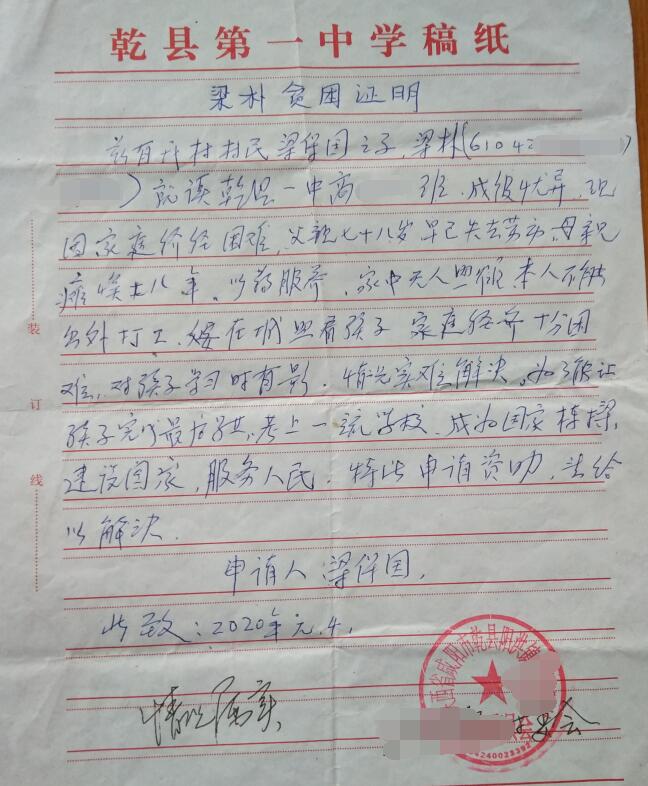 乾县第一中学稿纸
梁朴贫困证明
兹有我村村民梁保国之子,梁朴(61042
)就读乾县一中高 班.成级优异.现
因家庭价经困难,父亲七十八岁早已失去劳动,母亲
瘫痪十八年.以药服养.家中无人照顾.本人不能
出外打工.妻在城照看孩子 家庭经济十分困
难,对孩子学习时有影.情况实难解决.为了能让
孩子完成最后学业,考上一流学校.成为国家栋梁,
建设国家,服务人民.特此申请资助,法给
以解决.
申请人:梁保国.
此致:2020年元.4.
情况属实
装
订
线
西省咸阳市乾县阳洪
会